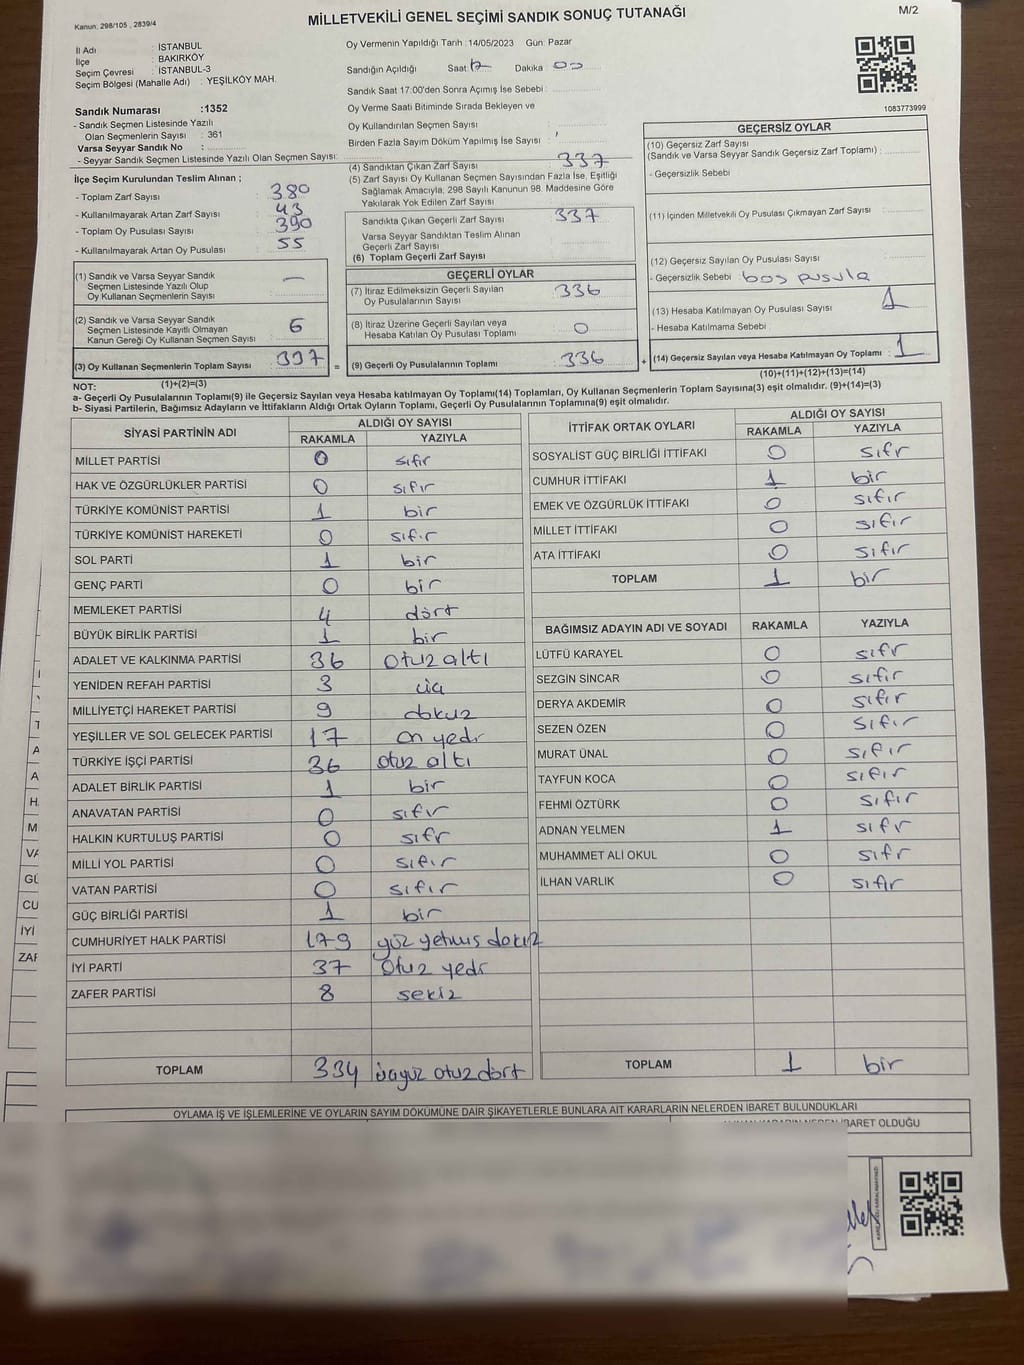 Kanun: 298/105 , 2839/4
MİLLETVEKİLİ GENEL SEÇİMİ SANDIK SONUÇ TUTANAĞI
M/2
İl Adı : İSTANBUL
İlçe : BAKIRKÖY
Seçim Çevresi : İSTANBUL-3
Seçim Bölgesi (Mahalle Adı) : YEŞİLKÖY MAH.
Sandık Numarası :1352
- Sandık Seçmen Listesinde Yazılı
Olan Seçmenlerin Sayısı : 361
Varsa Seyyar Sandık No :
- Seyyar Sandık Seçmen Listesinde Yazılı Olan Seçmen Sayısı:
İlçe Seçim Kurulundan Teslim Alınan ;
- Toplam Zarf Sayısı 380
- Kullanılmayarak Artan Zarf Sayısı 43
- Toplam Oy Pusulası Sayısı 390
- Kullanılmayarak Artan Oy Pusulası 55
(1) Sandık ve Varsa Seyyar Sandık
Seçmen Listesinde Yazılı Olup
Oy Kullanan Seçmenlerin Sayısı —
(2) Sandık ve Varsa Seyyar Sandık
Seçmen Listesinde Kayıtlı Olmayan
Kanun Gereği Oy Kullanan Seçmen Sayısı 6
(3) Oy Kullanan Seçmenlerin Toplam Sayısı 337
(1)+(2)=(3)
Oy Vermenin Yapıldığı Tarih : 14/05/2023 Gün: Pazar
Sandığın Açıldığı Saat 17 Dakika 00
Sandık Saat 17:00'den Sonra Açımış İse Sebebi :
Oy Verme Saati Bitiminde Sırada Bekleyen ve
Oy Kullandırılan Seçmen Sayısı :
Birden Fazla Sayım Döküm Yapılmış İse Sayısı :
(4) Sandıktan Çıkan Zarf Sayısı 337
(5) Zarf Sayısı Oy Kullanan Seçmen Sayısından Fazla İse, Eşitliği
Sağlamak Amacıyla, 298 Sayılı Kanunun 98. Maddesine Göre
Yakılarak Yok Edilen Zarf Sayısı
Sandıkta Çıkan Geçerli Zarf Sayısı 337
Varsa Seyyar Sandıktan Teslim Alınan
Geçerli Zarf Sayısı
(6) Toplam Geçerli Zarf Sayısı
GEÇERLİ OYLAR
(7) İtiraz Edilmeksizin Geçerli Sayılan
Oy Pusulalarının Sayısı 336
(8) İtiraz Üzerine Geçerli Sayılan veya
Hesaba Katılan Oy Pusulası Toplamı 0
= (9) Geçerli Oy Pusulalarının Toplamı 336
1083773999
GEÇERSİZ OYLAR
(10) Geçersiz Zarf Sayısı
(Sandık ve Varsa Seyyar Sandık Geçersiz Zarf Toplamı) :
- Geçersizlik Sebebi
(11) İçinden Milletvekili Oy Pusulası Çıkmayan Zarf Sayısı
(12) Geçersiz Sayılan Oy Pusulası Sayısı
- Geçersizlik Sebebi boş pusula
(13) Hesaba Katılmayan Oy Pusulası Sayısı 1
- Hesaba Katılmama Sebebi
+ (14) Geçersiz Sayılan veya Hesaba Katılmayan Oy Toplamı : 1
(10)+(11)+(12)+(13)=(14)
NOT:
a- Geçerli Oy Pusulalarının Toplamı(9) ile Geçersiz Sayılan veya Hesaba katılmayan Oy Toplamı(14) Toplamları, Oy Kullanan Seçmenlerin Toplam Sayısına(3) eşit olmalıdır. (9)+(14)=(3)
b- Siyasi Partilerin, Bağımsız Adayların ve İttifakların Aldığı Ortak Oyların Toplamı, Geçerli Oy Pusulalarının Toplamına(9) eşit olmalıdır.
SİYASİ PARTİNİN ADI ALDIĞI OY SAYISI
RAKAMLA YAZIYLA
MİLLET PARTİSİ 0 sıfır
HAK VE ÖZGÜRLÜKLER PARTİSİ 0 sıfır
TÜRKİYE KOMÜNİST PARTİSİ 1 bir
TÜRKİYE KOMÜNİST HAREKETİ 0 sıfır
SOL PARTİ 1 bir
GENÇ PARTİ 0 bir
MEMLEKET PARTİSİ 4 dört
BÜYÜK BİRLİK PARTİSİ 1 bir
ADALET VE KALKINMA PARTİSİ 36 otuz altı
YENİDEN REFAH PARTİSİ 3 üç
MİLLİYETÇİ HAREKET PARTİSİ 9 dokuz
YEŞİLLER VE SOL GELECEK PARTİSİ 17 on yedi
TÜRKİYE İŞÇİ PARTİSİ 36 otuz altı
ADALET BİRLİK PARTİSİ 1 bir
ANAVATAN PARTİSİ 0 sıfır
HALKIN KURTULUŞ PARTİSİ 0 sıfır
MİLLİ YOL PARTİSİ 0 sıfır
VATAN PARTİSİ 0 sıfır
GÜÇ BİRLİĞİ PARTİSİ 1 bir
CUMHURİYET HALK PARTİSİ 179 yüz yetmiş dokuz
İYİ PARTİ 37 otuz yedi
ZAFER PARTİSİ 8 sekiz
TOPLAM 334 üçyüz otuzdört
İTTİFAK ORTAK OYLARI ALDIĞI OY SAYISI
RAKAMLA YAZIYLA
SOSYALİST GÜÇ BİRLİĞİ İTTİFAKI 0 sıfır
CUMHUR İTTİFAKI 1 bir
EMEK VE ÖZGÜRLÜK İTTİFAKI 0 sıfır
MİLLET İTTİFAKI 0 sıfır
ATA İTTİFAKI 0 sıfır
TOPLAM 1 bir
BAĞIMSIZ ADAYIN ADI VE SOYADI RAKAMLA YAZIYLA
LÜTFÜ KARAYEL 0 sıfır
SEZGİN SİNCAR 0 sıfır
DERYA AKDEMİR 0 sıfır
SEZEN ÖZEN 0 sıfır
MURAT ÜNAL 0 sıfır
TAYFUN KOCA 0 sıfır
FEHMİ ÖZTÜRK 0 sıfır
ADNAN YELMEN 1 sıfır
MUHAMMET ALİ OKUL 0 sıfır
İLHAN VARLIK 0 sıfır
TOPLAM 1 bir
OYLAMA İŞ VE İŞLEMLERİNE VE OYLARIN SAYIM DÖKÜMÜNE DAİR ŞİKAYETLERLE BUNLARA AİT KARARLARIN NELERDEN İBARET BULUNDUKLARI
İBARET OLDUĞU